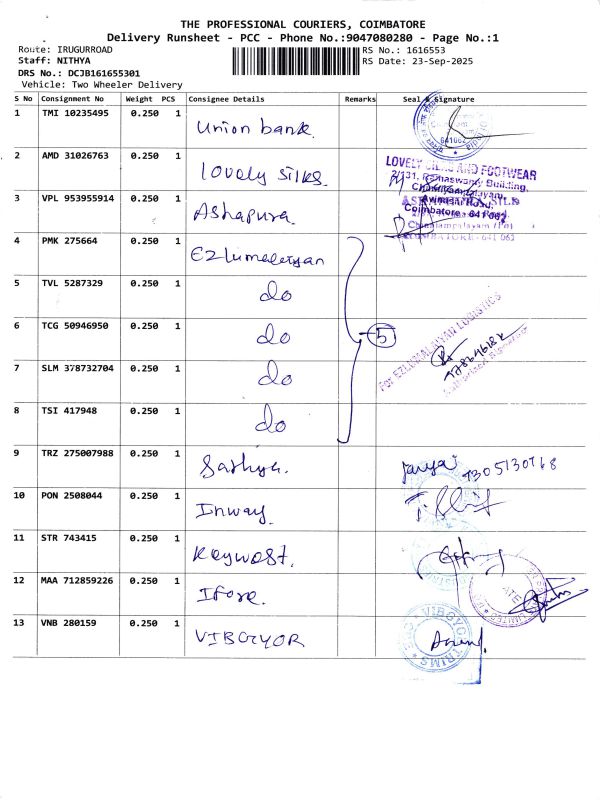 THE PROFESSIONAL COURIERS, COIMBATORE
Delivery Runsheet - PCC - Phone No.:9047080280 - Page No.:1
Route: IRUGURROAD
RS No.: 1616553
Staff: NITHYA
RS Date: 23-Sep-2025
DRS No.: DCJB161655301
Vehicle: Two Wheeler Delivery
S No Consignment No Weight PCS Consignee Details Remarks Seal & Signature
1 TMI 10235495 0.250 1 Union bank.
641062
2 AMD 31026763 0.250 1 Lovely silks.
LOVELY SILKS AND FOOTWEAR
2/131, Ramaswamy Building,
Chinniyampalayam,
Avinashi Road,
Coimbatore - 641 062
3 VPL 953955914 0.250 1 Ashapura.
Chinniampalayam (Po)
COIMBATORE - 641 062
4 PMK 275664 0.250 1 Ezlumalaiyan
5 TVL 5287329 0.250 1 do
6 TCG 50946950 0.250 1 do 5
For EZLUMALAIYAN LOGISTICS
Authorised Signatory
7 SLM 378732704 0.250 1 do
8 TSI 417948 0.250 1 do
9 TRZ 275007988 0.250 1 Sathya.
10 PON 2508044 0.250 1 Inway.
11 STR 743415 0.250 1 Keywest.
12 MAA 712859226 0.250 1 Ifore.
13 VNB 280159 0.250 1 VIBGYOR
VIBGYOR TRIMS